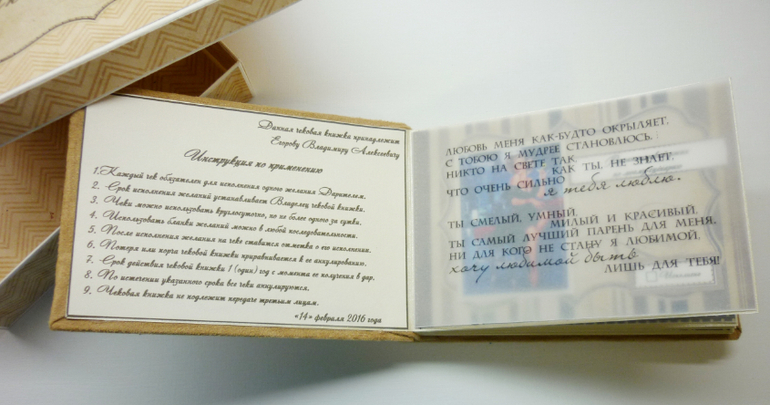 Данная чековая книжка принадлежит
Егорову Владимиру Алексеевичу
Инструкция по применению
1. Каждый чек обязателен для исполнения одного желания Дарителем.
2. Срок исполнения желаний устанавливает Владелец чековой книжки.
3. Чеки можно использовать круглосуточно, но не более одного за сутки.
4. Использовать бланки желаний можно в любой последовательности.
5. После исполнения желания на чеке ставится отметка о его исполнении.
6. Потеря или порча чековой книжки приравнивается к ее аннулированию.
7. Срок действия чековой книжки 1 (один) год с момента ее получения в дар.
8. По истечении указанного срока все чеки аннулируются.
9. Чековая книжка не подлежит передаче третьим лицам.
«14» февраля 2016 года
ЛЮБОВЬ МЕНЯ КАК-БУДТО ОКРЫЛЯЕТ,
С ТОБОЮ Я МУДРЕЕ СТАНОВЛЮСЬ.
НИКТО НА СВЕТЕ ТАК,
КАК ТЫ, НЕ ЗНАЕТ,
ЧТО ОЧЕНЬ СИЛЬНО
я тебя люблю.
ТЫ СМЕЛЫЙ, УМНЫЙ,
МИЛЫЙ И КРАСИВЫЙ.
ТЫ САМЫЙ ЛУЧШИЙ ПАРЕНЬ ДЛЯ МЕНЯ.
НИ ДЛЯ КОГО НЕ СТАНУ Я ЛЮБИМОЙ,
хочу любимой быть
ЛИШЬ ДЛЯ ТЕБЯ!